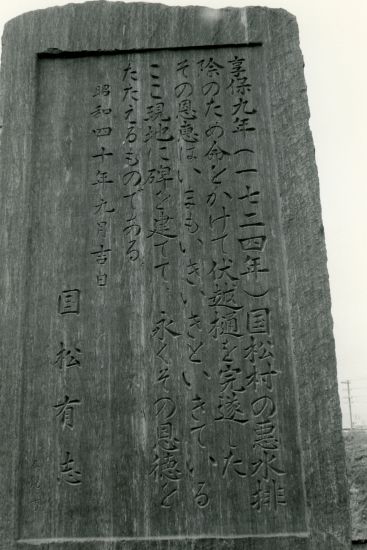 享保九年(一七二四年)国松村の悪水排
除のため命をかけて伏越樋を完遂した
その恩恵はいまもいきいきといきている
ここ現地に碑を建てて永くその恩徳を
たたえるものである
昭和四十年九月吉日
国松有志